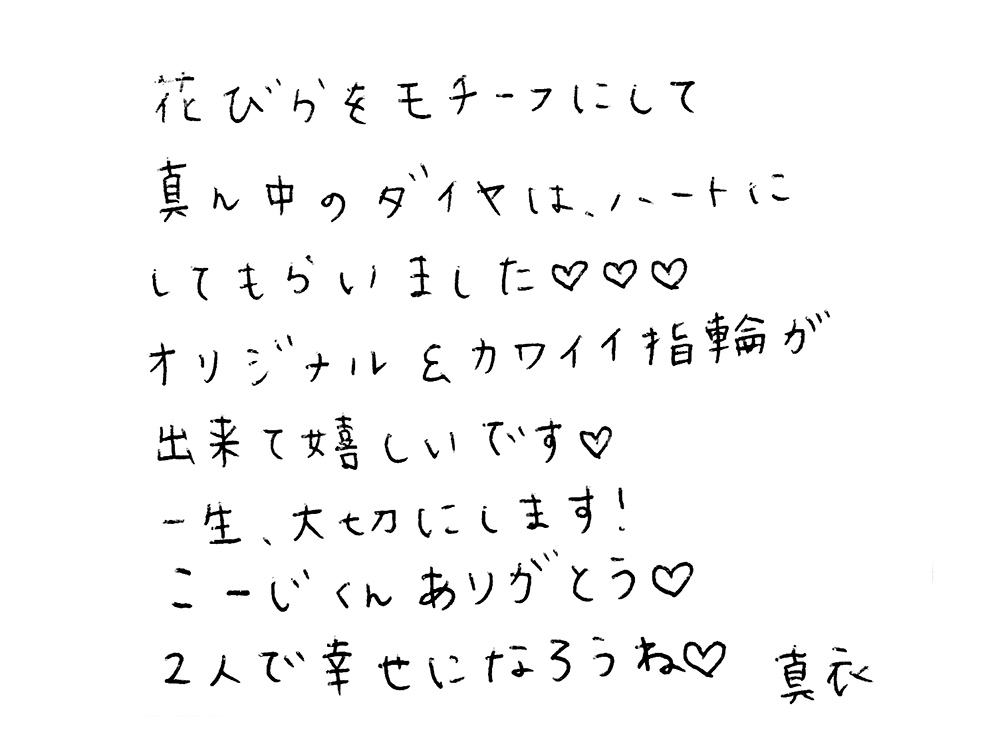 花びらをモチーフにして
真ん中のダイヤは、ハートに
してもらいました♡♡♡
オリジナル&カワイイ指輪が
出来て嬉しいです♡
一生、大切にします!
こーじくんありがとう♡
2人で幸せになろうね♡ 真衣